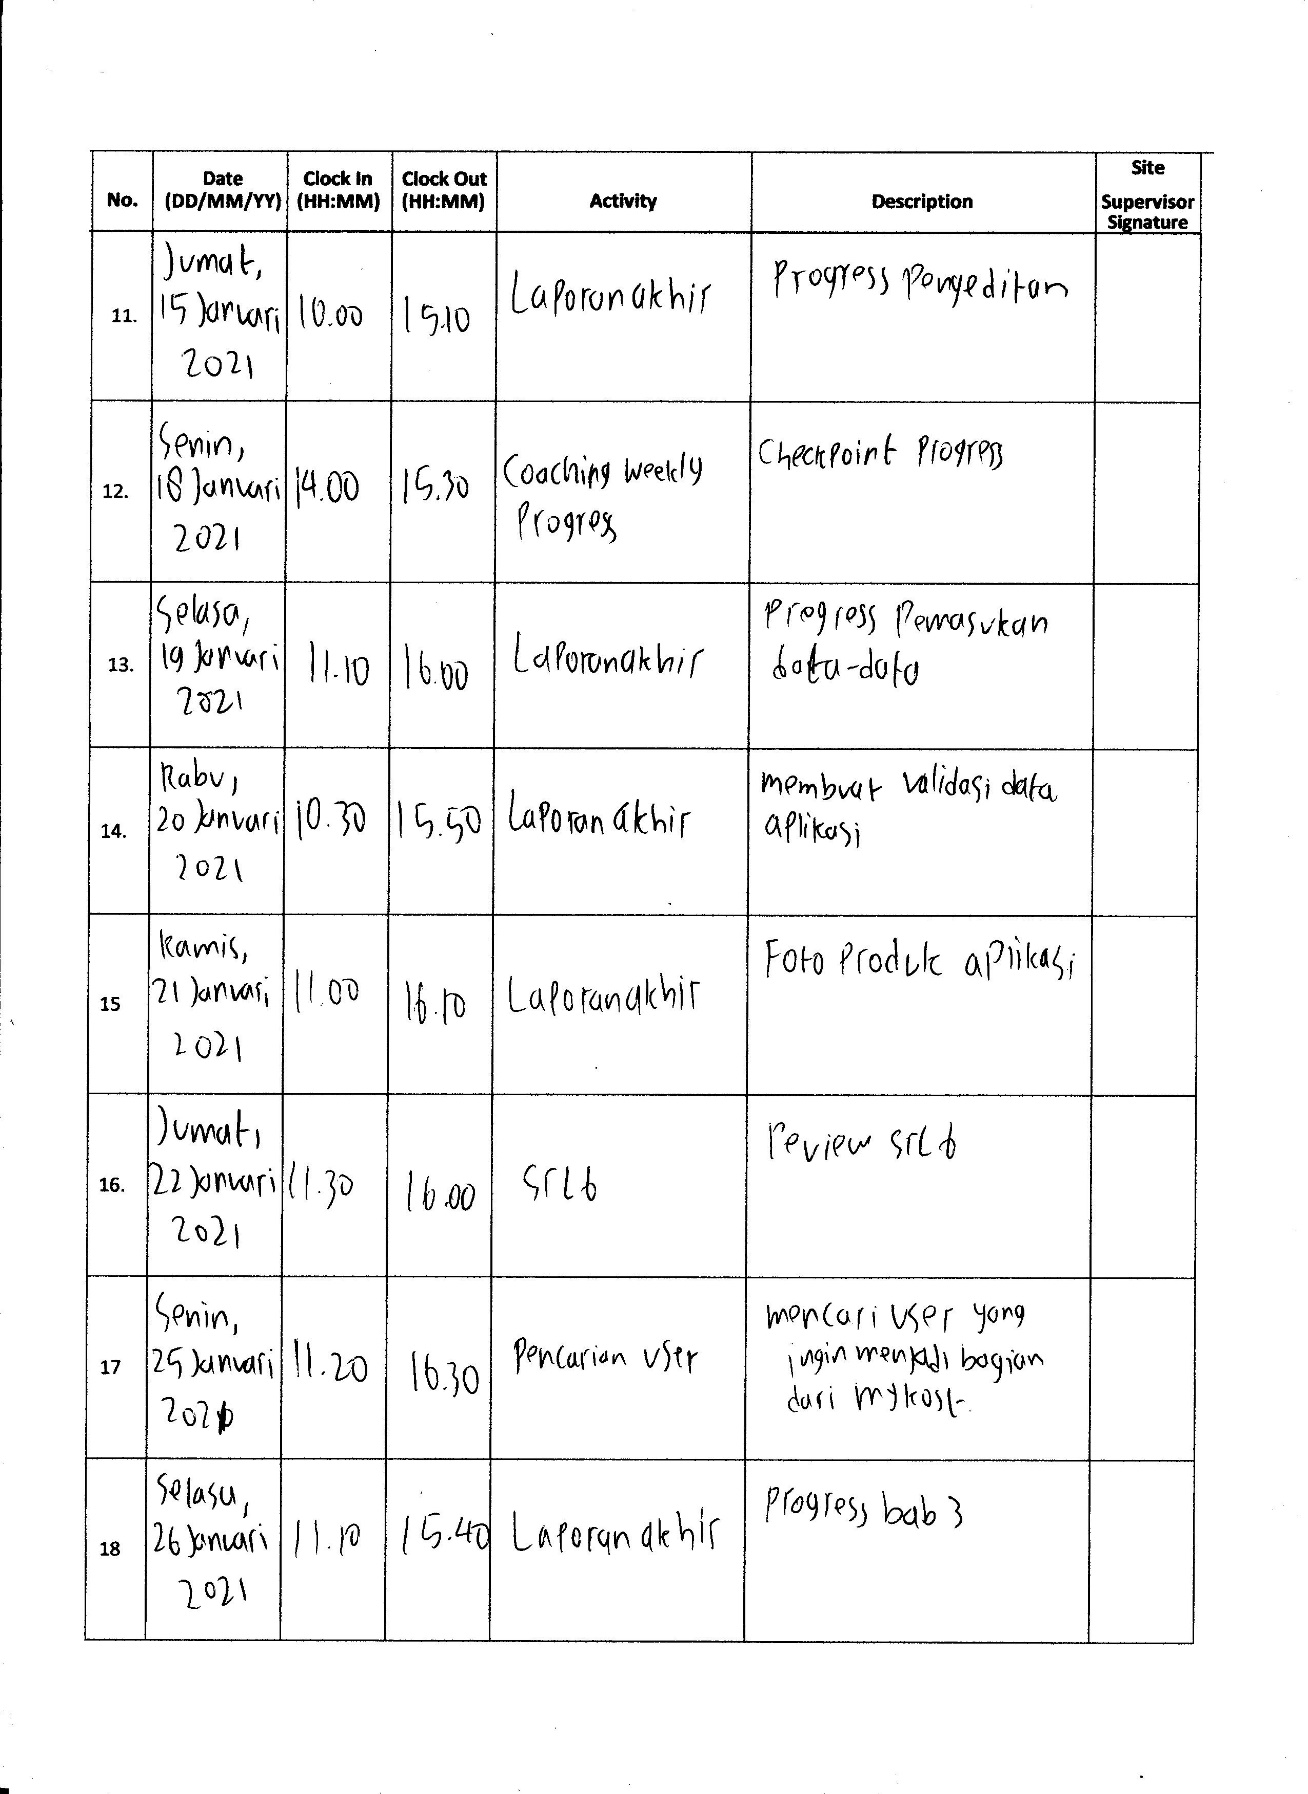 No.
Date
(DD/MM/YY)
Clock In
(HH:MM)
Clock Out
(HH:MM)
Activity
Description
Site
Supervisor
Signature
11.
Jumat,
15 Januari
2021
10.00
15.10
Laporan akhir
Progress Pengeditan
12.
Senin,
18 Januari
2021
14.00
15.30
Coaching weekly
Progress
Checkpoint Progress
13.
Selasa,
19 Januari
2021
11.10
16.00
Laporan akhir
Progress Pemasukan
data-data
14.
Rabu,
20 Januari
2021
10.30
15.50
Laporan akhir
membuat validasi data
aplikasi
15
Kamis,
21 Januari
2021
11.00
16.10
Laporan akhir
Foto Produk aplikasi
16.
Jumat,
22 Januari
2021
11.30
16.00
SRL 6
review SRL 6
17
Senin,
25 Januari
2021
11.20
16.30
Pencarian user
mencari user yang
ingin menjadi bagian
dari mykost.
18
Selasa,
26 Januari
2021
11.10
15.40
Laporan akhir
Progress bab 3